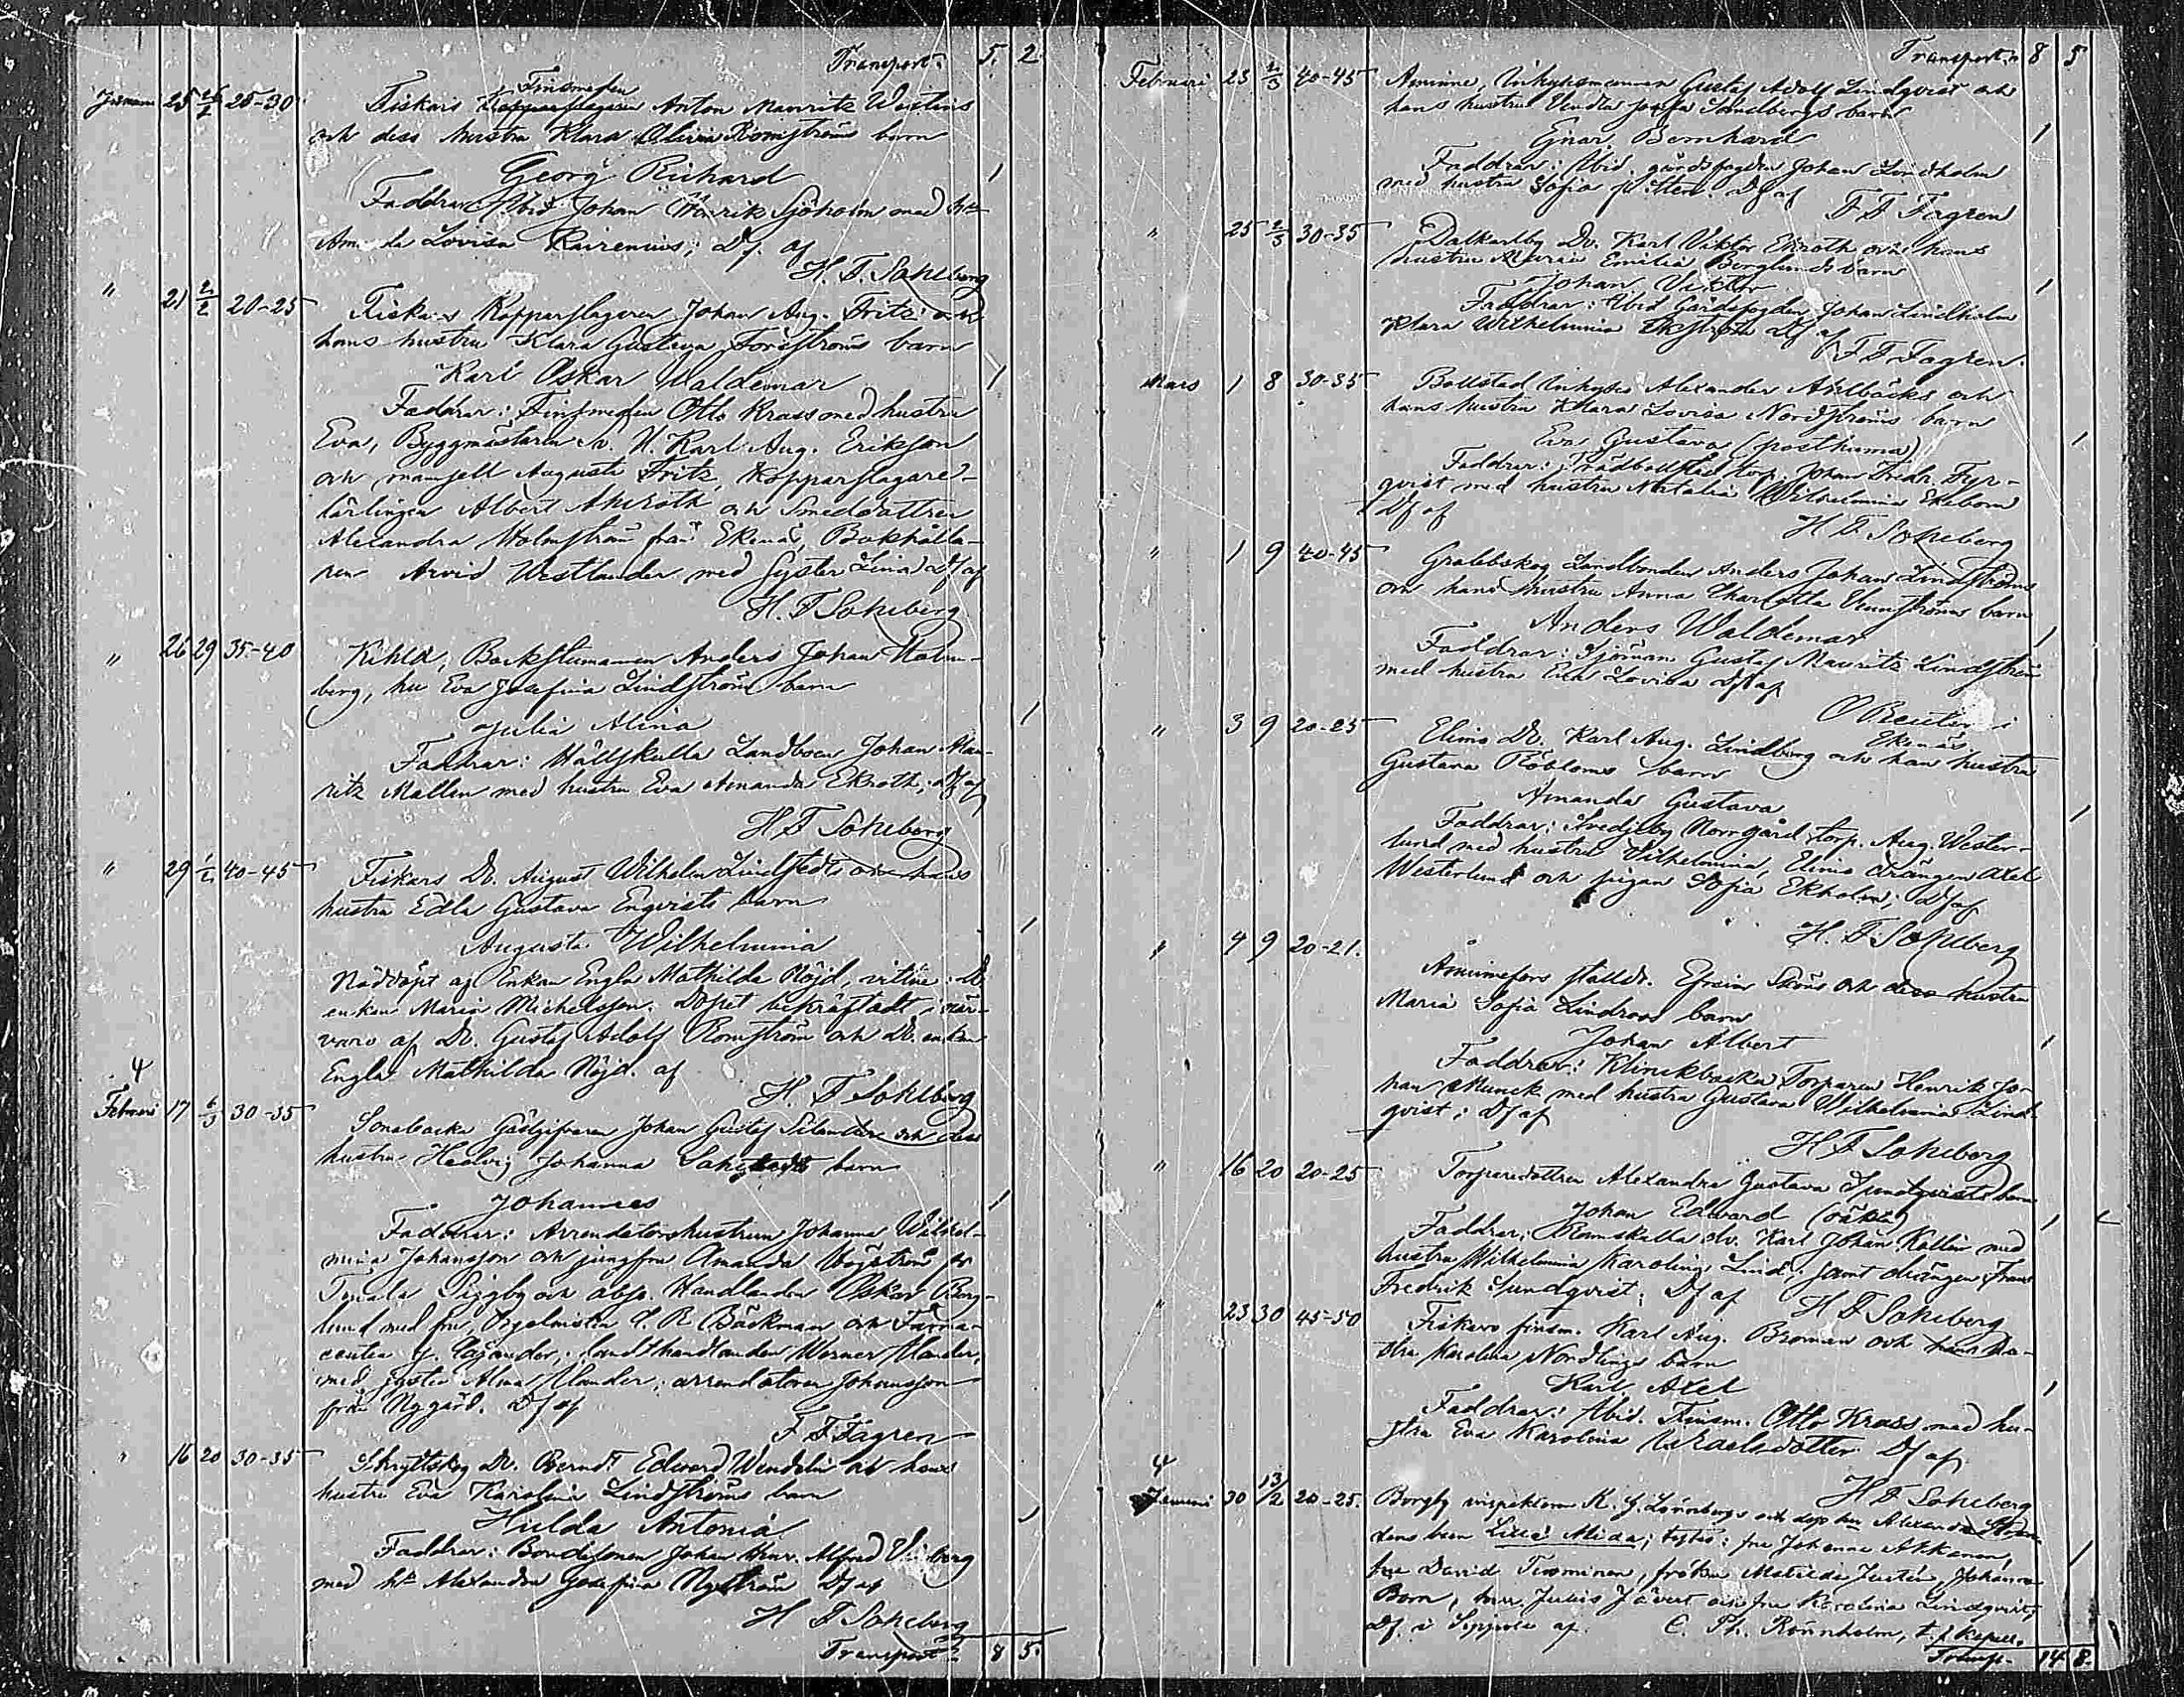 Transport. 5. 2.
Finsmeden
Januari 25 25-30 Fiskars Anton Mauritz Westens
och dess hustru Klara Olivia Romströms barn
Georg Richard 1
Faddrar: Ibid Johan Henrik Sjöholm med h:tr
Amanda Lovisa ; Df. af
H. F. Sohlberg
" 21 2/2 20-25 Fiskars Kopparslagaren Johan Aug. Fritz och
hans hustru Klara Gustava Forsströms barn
Karl Oskar Waldemar 1
Faddrar: Finsmeden Otto Krass med hustru
Eva, Byggmästaren Karl Aug. Erikson
och mamsell Augusta Fritz, Kopparslagare-
lärlingen Albert Ahlroth och Smeddottren
Alexandra Holmström från Ekenäs, Bokhålla-
ren Arvid Westlander med syster Lina; Df af
H. F Sohlberg
" 26 29 35-40 Kihla, Backstumannen Anders Johan Holm-
berg, hu Eva Josefina Lindström barn
Julia Alina 1
Faddrar: Hällskulla Landboen Johan Mau-
ritz Mallen med hustru Eva Amanda Ekroth; Df af
H F Sohlberg
" 29 1/2 40-45 Fiskars Dr. August Wilhelm Lindstedts och hans
hustru Edla Gustava Enqvists barn
Augusta Wilhelmina 1
Nöddöpt af Enkan Engla Mathilda Nöjd, vittne: Dr
enkan Maria Michelsson. Dopet bekräftadt i när-
varo af Dr. Gustaf Adolf Romström och Dr. enkan
Engla Mathilda Nöjd. af
H. F Sohlberg
4
Februari 17 6/3 30-35 Sonabacka Gästgifvaren Johan Gustaf Silanders och dess
hustru Hedvig Johanna barn
Johannes 1
Faddrar: Arrendatorshustrun Johanna Wilhel-
mina Johansson och jungfru Amanda fr
Tenala och absp. Handlanden Oskar Berg-
lund med fru, Orgelnisten C. R Bäckman och Farma-
ceuten J. Cajander, landthandlanden Werner
med syster Alma; arrendatoren Johansson
från Nygård. Df af
F F Fagren
" 16 20 30-35 Skryttskog Dr. Berndt Edvard Wendelin och hans
hustru Eva Karolina Lindströms barn
Hilda Antonia 1
Faddrar: Bondesonen Johan Henr. Alfred
med h:tr Alexandra Josefina Nyström Df af
H F Sohlberg
Transport 8 5.
Transport 8 5
Februari 23 2/3 40-45 Åminne, Inhysesmannen Gustaf Adolf Lindqvist och
hans hustru Josefa Sandbergs barn
Ejnar Bernhard 1
Faddrar: Ibid. gårdsfogden Johan Lindholm
med hustru Sofia Df af
F F Fagren
" 25 2/3 30-35 Dalkarlby Dr. Karl Viktor Ekroth och hans
hustru Maria Emilia Berglunds barn
Johan Viktor 1
Faddrar: Ibid Gårdsfogden Johan Lindholm
Klara Wilhelmina Df af
F F Fagren.
Mars 1 8 30-35 Bollstad Inhyses Alexander Ahlbäcks och
hans hustru Klara Lovisa Nordströms barn
Eva Gustava (posthuma) 1
Faddrar: torp. Johan Fredr. Fyr-
qvist med hustru Natalia Wilhelmina Ekebom
Df af
H F Sohlberg
" 1 9 40-45 Grabbskog Landbonden Anders Johan Lindströms
och hans hustru Anna Charlotta barn
Anders Waldemar 1
Faddrar: Sjöman Gustaf Mauritz Lindström
med hustru Eva Lovisa Df af
O Reuter i
Ekenäs
" 3 9 20-25 Elimo Dr. Karl Aug. Lindberg och han hustru
Gustava Röbloms barn
Amanda Gustava 1
Faddrar: Svedjeby Norrgård torp. Aug. Wester-
lund med hustru Vilhelmina, Elimo drängen Axel
Westerlund och pigan Sofia Ekholm; Df af
H. F Sohlberg
" 4 9 20-21. Åminnefors Efraim och dess hustru
Maria Sofia Lindroos barn
Johan Albert 1
Faddrar: Klinkbacka Torparen Henrik Jo-
han Munck med hustru Gustava Wilhelmina Lind-
qvist; Df af
H F Sohlberg
" 16 20 20-25 Torparedottren Alexandra Gustava Sundqvists barn
Johan Edvard (oäkta) 1
Faddrar: Dr. Karl Johan Kallin med
hustru Wilhelmina Karolina Lind, samt drängen Frans
Fredrik Sundqvist; Df af H F Sohlberg
" 23 30 45-50 Fiskars finsm. Karl Aug. Broman och hans hu-
stru Karolina Nordlings barn
Karl Axel 1
Faddrar: Ibid. Finsm. Otto Krass med hu-
stru Eva Karolina Israelsdotter Df af
H F Sohlberg
4
Januari 30 13/2 20-25. Borgby inspektoren K. J. Lönnbergs och dess hu Alexandra
barn Lilli Alida; testes: fru Johanna Akkanen,
herr David Tuominen, fröken Matilda Justén, Johanna
Born, herr Julius Jävert och fru Karolina Lindqvist; 1
Df. i Sippola af C. Th. Rönnholm, t. f. kapell.
Transp. 14 8.